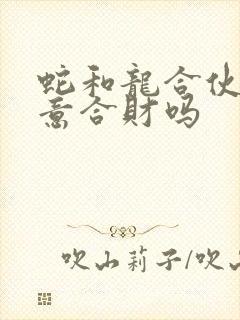 蛇和龍合伙
意合財吗
吹山莉子/吹山